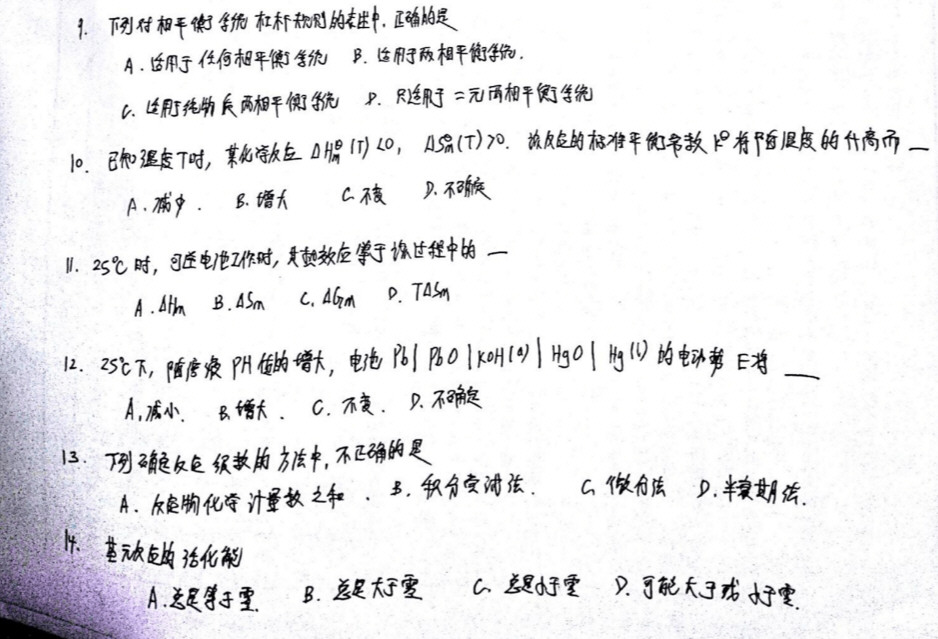 9. 下列对相平衡系统杠杆规则的表述中,正确的是
A. 适用于任何相平衡系统 B. 适用于两相平衡系统.
C. 适用纯物质两相平衡系统 D. 只适用于二元两相平衡系统
10. 已知温度T时,某化学反应 ΔHₘ°(T)<0, ΔSₘ°(T)>0. 该反应的标准平衡常数K°将随温度的升高而 __
A. 减少. B. 增大 C. 不变 D. 不确定
11. 25℃时,可逆电池工作时,其热效应等于该过程中的 __
A. ΔHm B. ΔSm C. ΔGm D. TΔSm
12. 25℃下,随溶液PH值的增大,电池 Pb | PbO | KOH(a) | HgO | Hg(l) 的电动势 E将 __
A. 减小. B. 增大. C. 不变. D. 不确定
13. 下列确定反应级数的方法中,不正确的是
A. 反应物化学计量数之和. B. 积分尝试法. C. 微分法 D. 半衰期法.
14. 基元反应的活化能
A. 总是等于零. B. 总是大于零 C. 总是小于零 D. 可能大于或小于零.